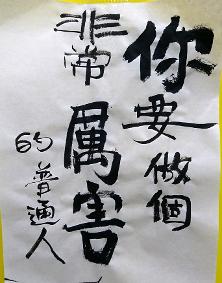 你要做個
非常厲害
的普通人